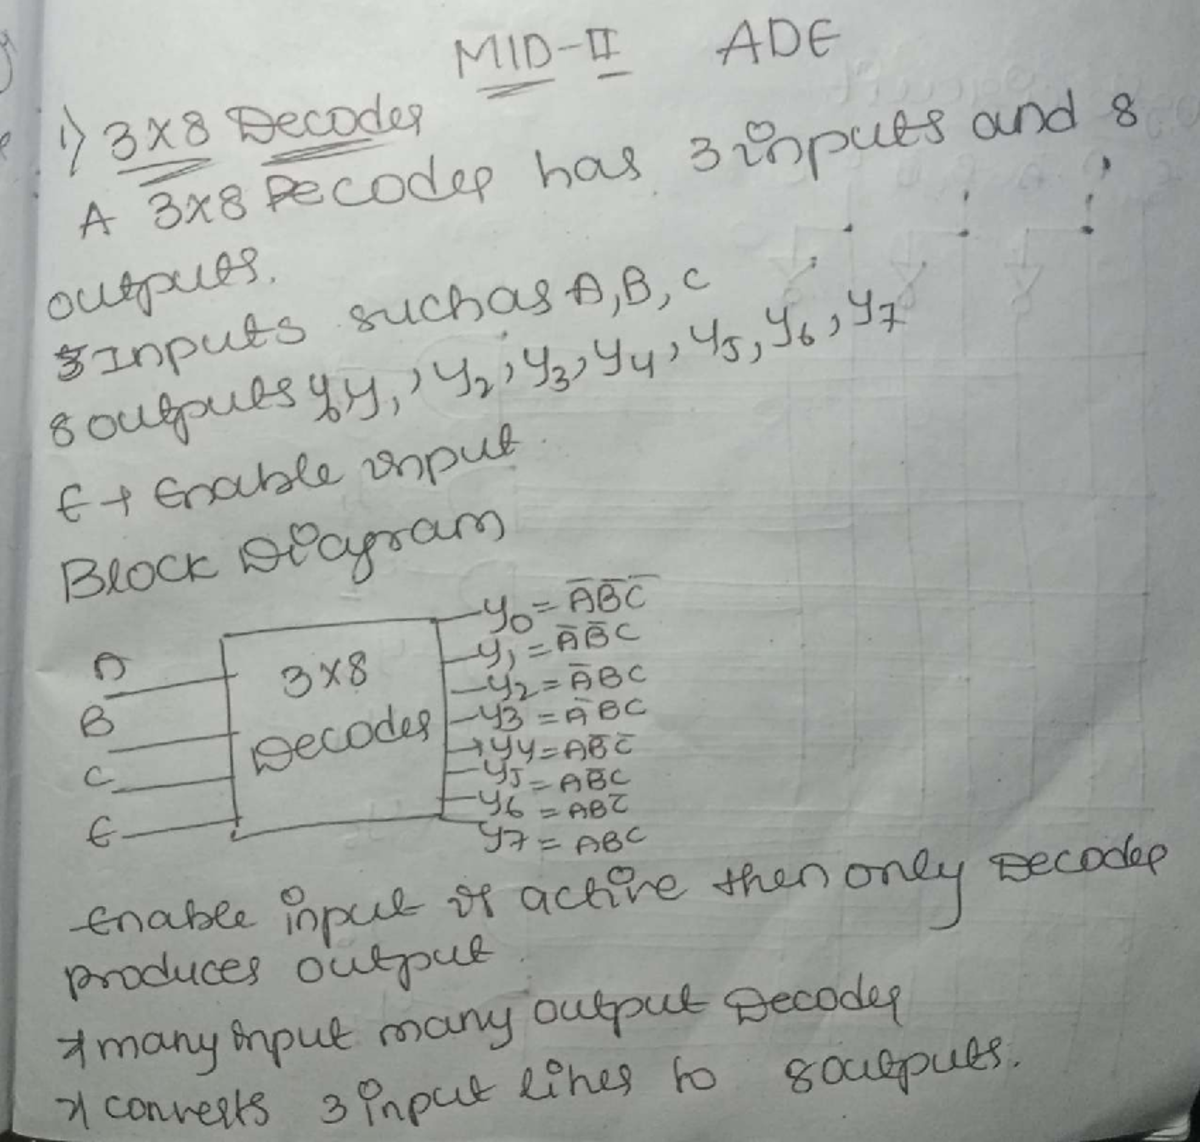 MID-II ADE
1) 3x8 Decoder
A 3x8 Decoder has 3 inputs and 8
outputs.
3 Inputs such as A, B, C
8 outputs y₀ y₁, y₂, y₃, y₄, y₅, y₆, y₇
E → Enable input
Block Diagram
A
B
C
E
3x8
Decoder
y₀ = A̅B̅C̅
y₁ = A̅B̅C
y₂ = A̅BC
y₃ = A̅BC
y₄ = AB̅C̅
y₅ = AB̅C
y₆ = ABC̅
y₇ = ABC
Enable input is active then only Decoder
produces output
* many input many output Decoder
* converts 3 input lines to 8 outputs.